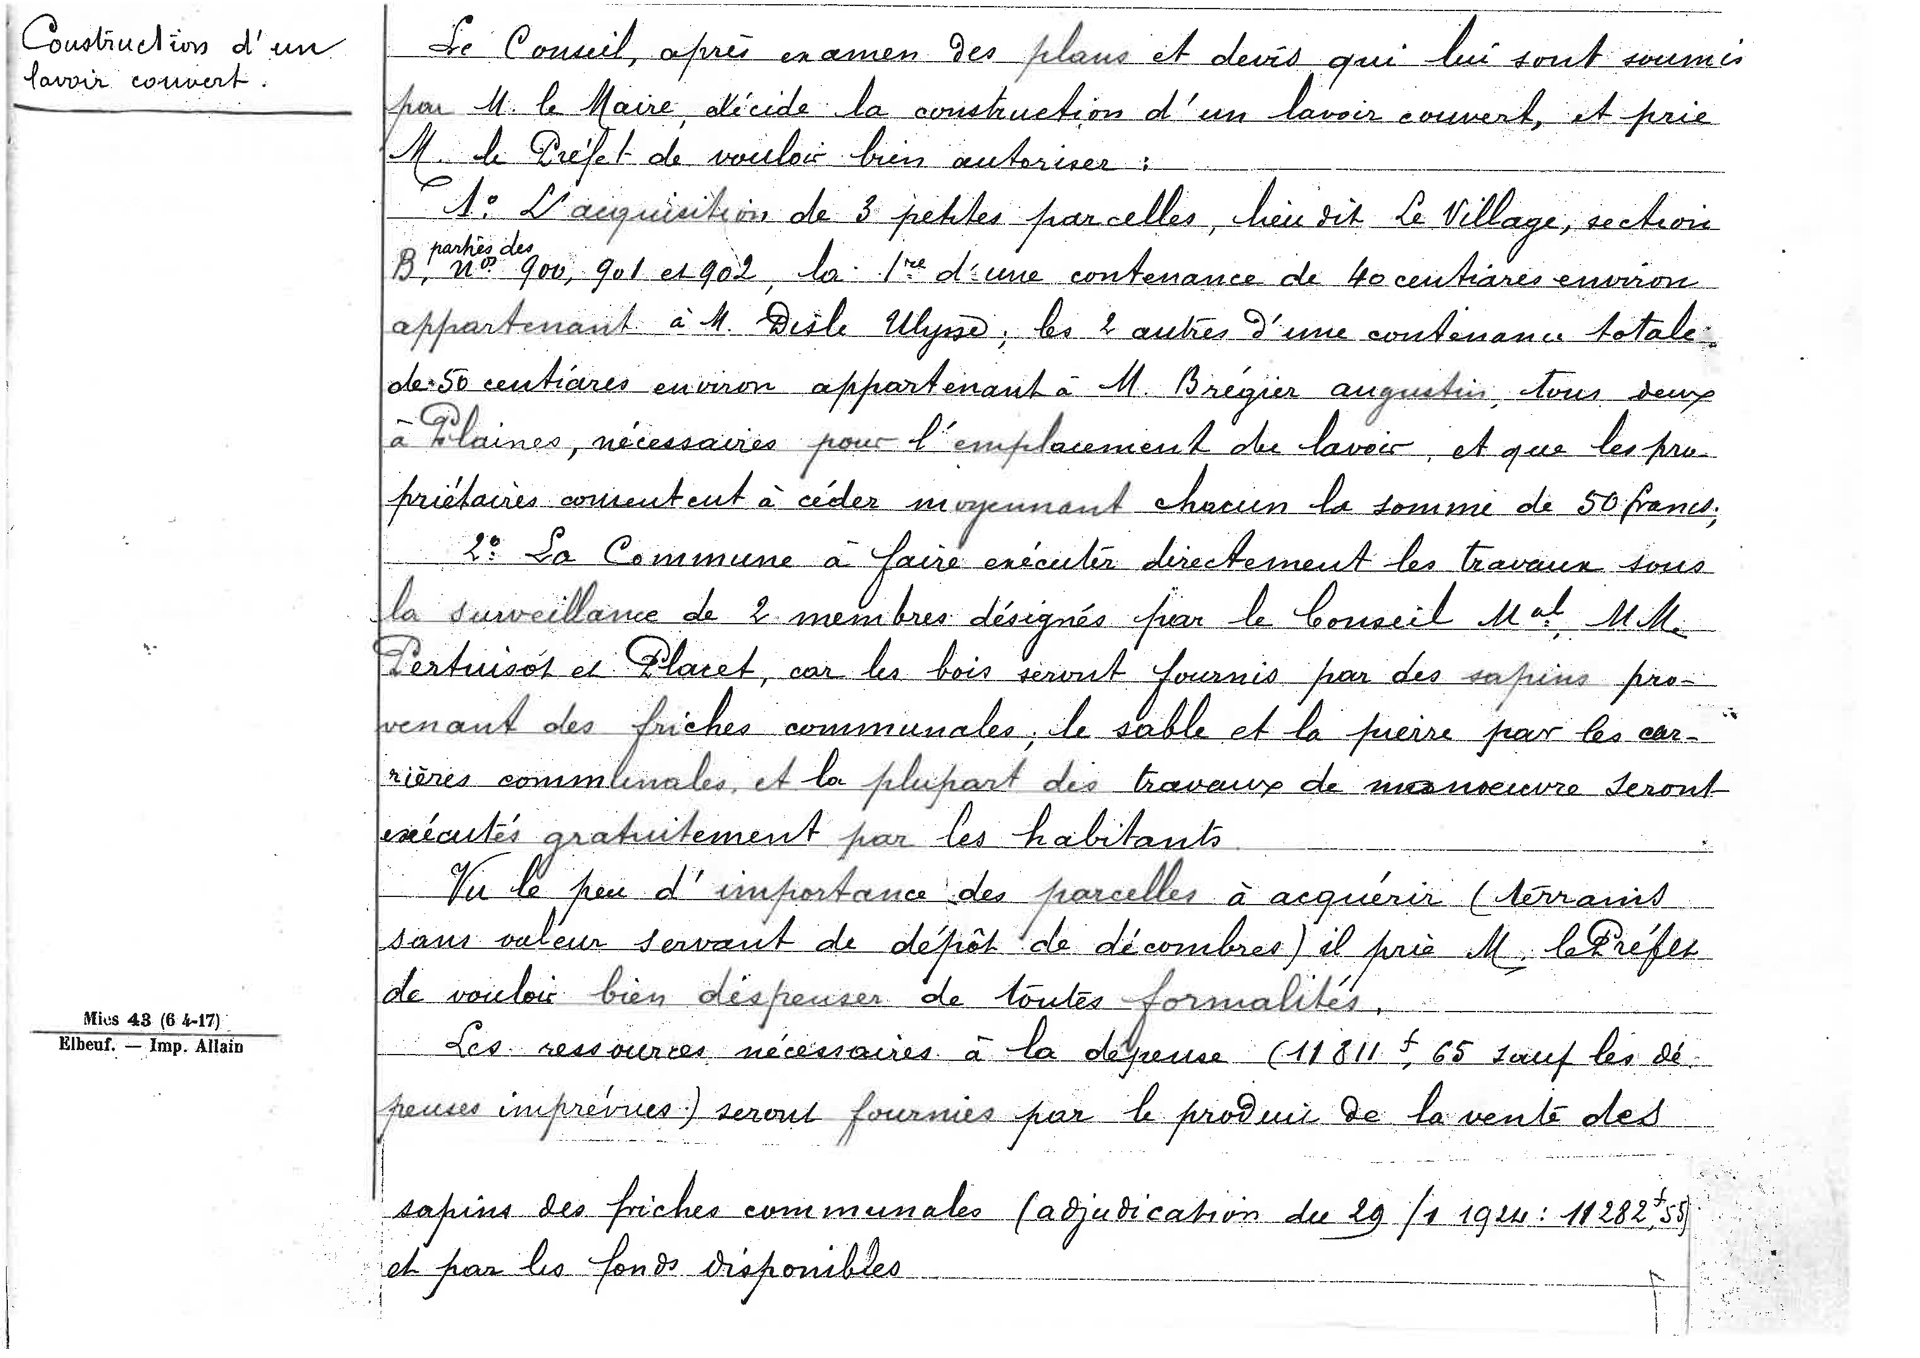 Construction d'un
lavoir couvert.
Le Conseil, après examen des plans et devis qui lui sont soumis
par M. le Maire, décide la construction d'un lavoir couvert, et prie
M. le Préfet de vouloir bien autoriser :
1º L'acquisition de 3 petites parcelles, lieu dit Le Village, section
parties des
B, nos 900, 901 et 902, la 1re d'une contenance de 40 centiares environ
appartenant à M. Disle Ulysse ; les 2 autres d'une contenance totale
de 50 centiares environ appartenant à M. Brégier augustin, tous deux
à Plaines, nécessaires pour l'emplacement du lavoir, et que les pro-
priétaires consentent à céder moyennant chacun la somme de 50 francs ;
2º La Commune à faire exécuter directement les travaux sous
la surveillance de 2 membres désignés par le Conseil Mal, MM.
Pertuisot et Placet, car les bois seront fournis par des sapins pro-
venant des friches communales ; le sable et la pierre par les car-
rières communales, et la plupart des travaux de manoeuvre seront
exécutés gratuitement par les habitants.
Vu le peu d'importance des parcelles à acquérir (terrains
sans valeur servant de dépôt de décombres) il prie M. le Préfet
de vouloir bien dispenser de toutes formalités.
Les ressources nécessaires à la dépense (11811f,65 sauf les dé-
penses imprévues) seront fournies par le produit de la vente des
sapins des friches communales (adjudication du 29/1 1924 : 11282f,55)
et par les fonds disponibles
Mies 43 (6 4-17)
Elbeuf. — Imp. Allain